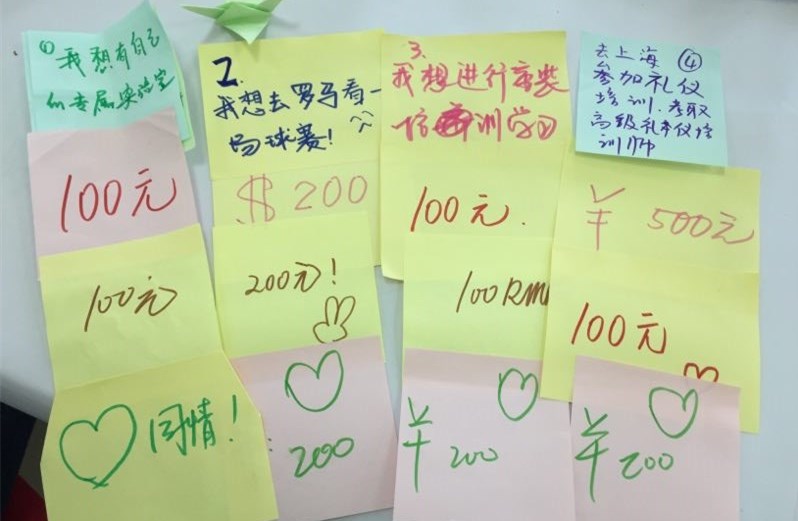 ① 我想有自己
的专属实验室
100元
100元
同情!
2.
我想去罗马看一
场球赛!
$ 200
200元!
200
3.
我想进行商装
培训学习
100元.
100RM
¥ 200
去上海 ④
参加礼仪
培训.考取
高级礼仪培
训师
¥ 500元
100元
¥ 200